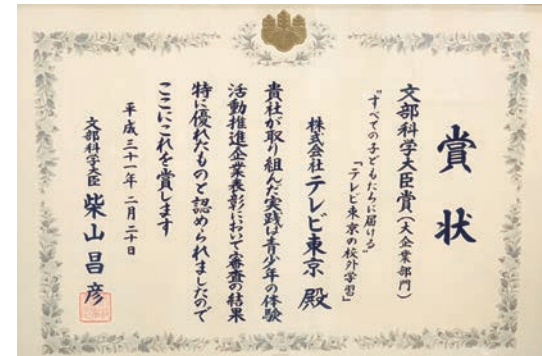 賞状
文部科学大臣賞（大企業部門）
"すべての子どもたちに届ける"
「テレビ東京の校外学習」
株式会社テレビ東京 殿
貴社が取り組んだ実践は青少年の体験
活動推進企業表彰において審査の結果
特に優れたものと認められましたので
ここにこれを賞します
平成三十一年 二月二十日
文部科学大臣 柴山昌彦